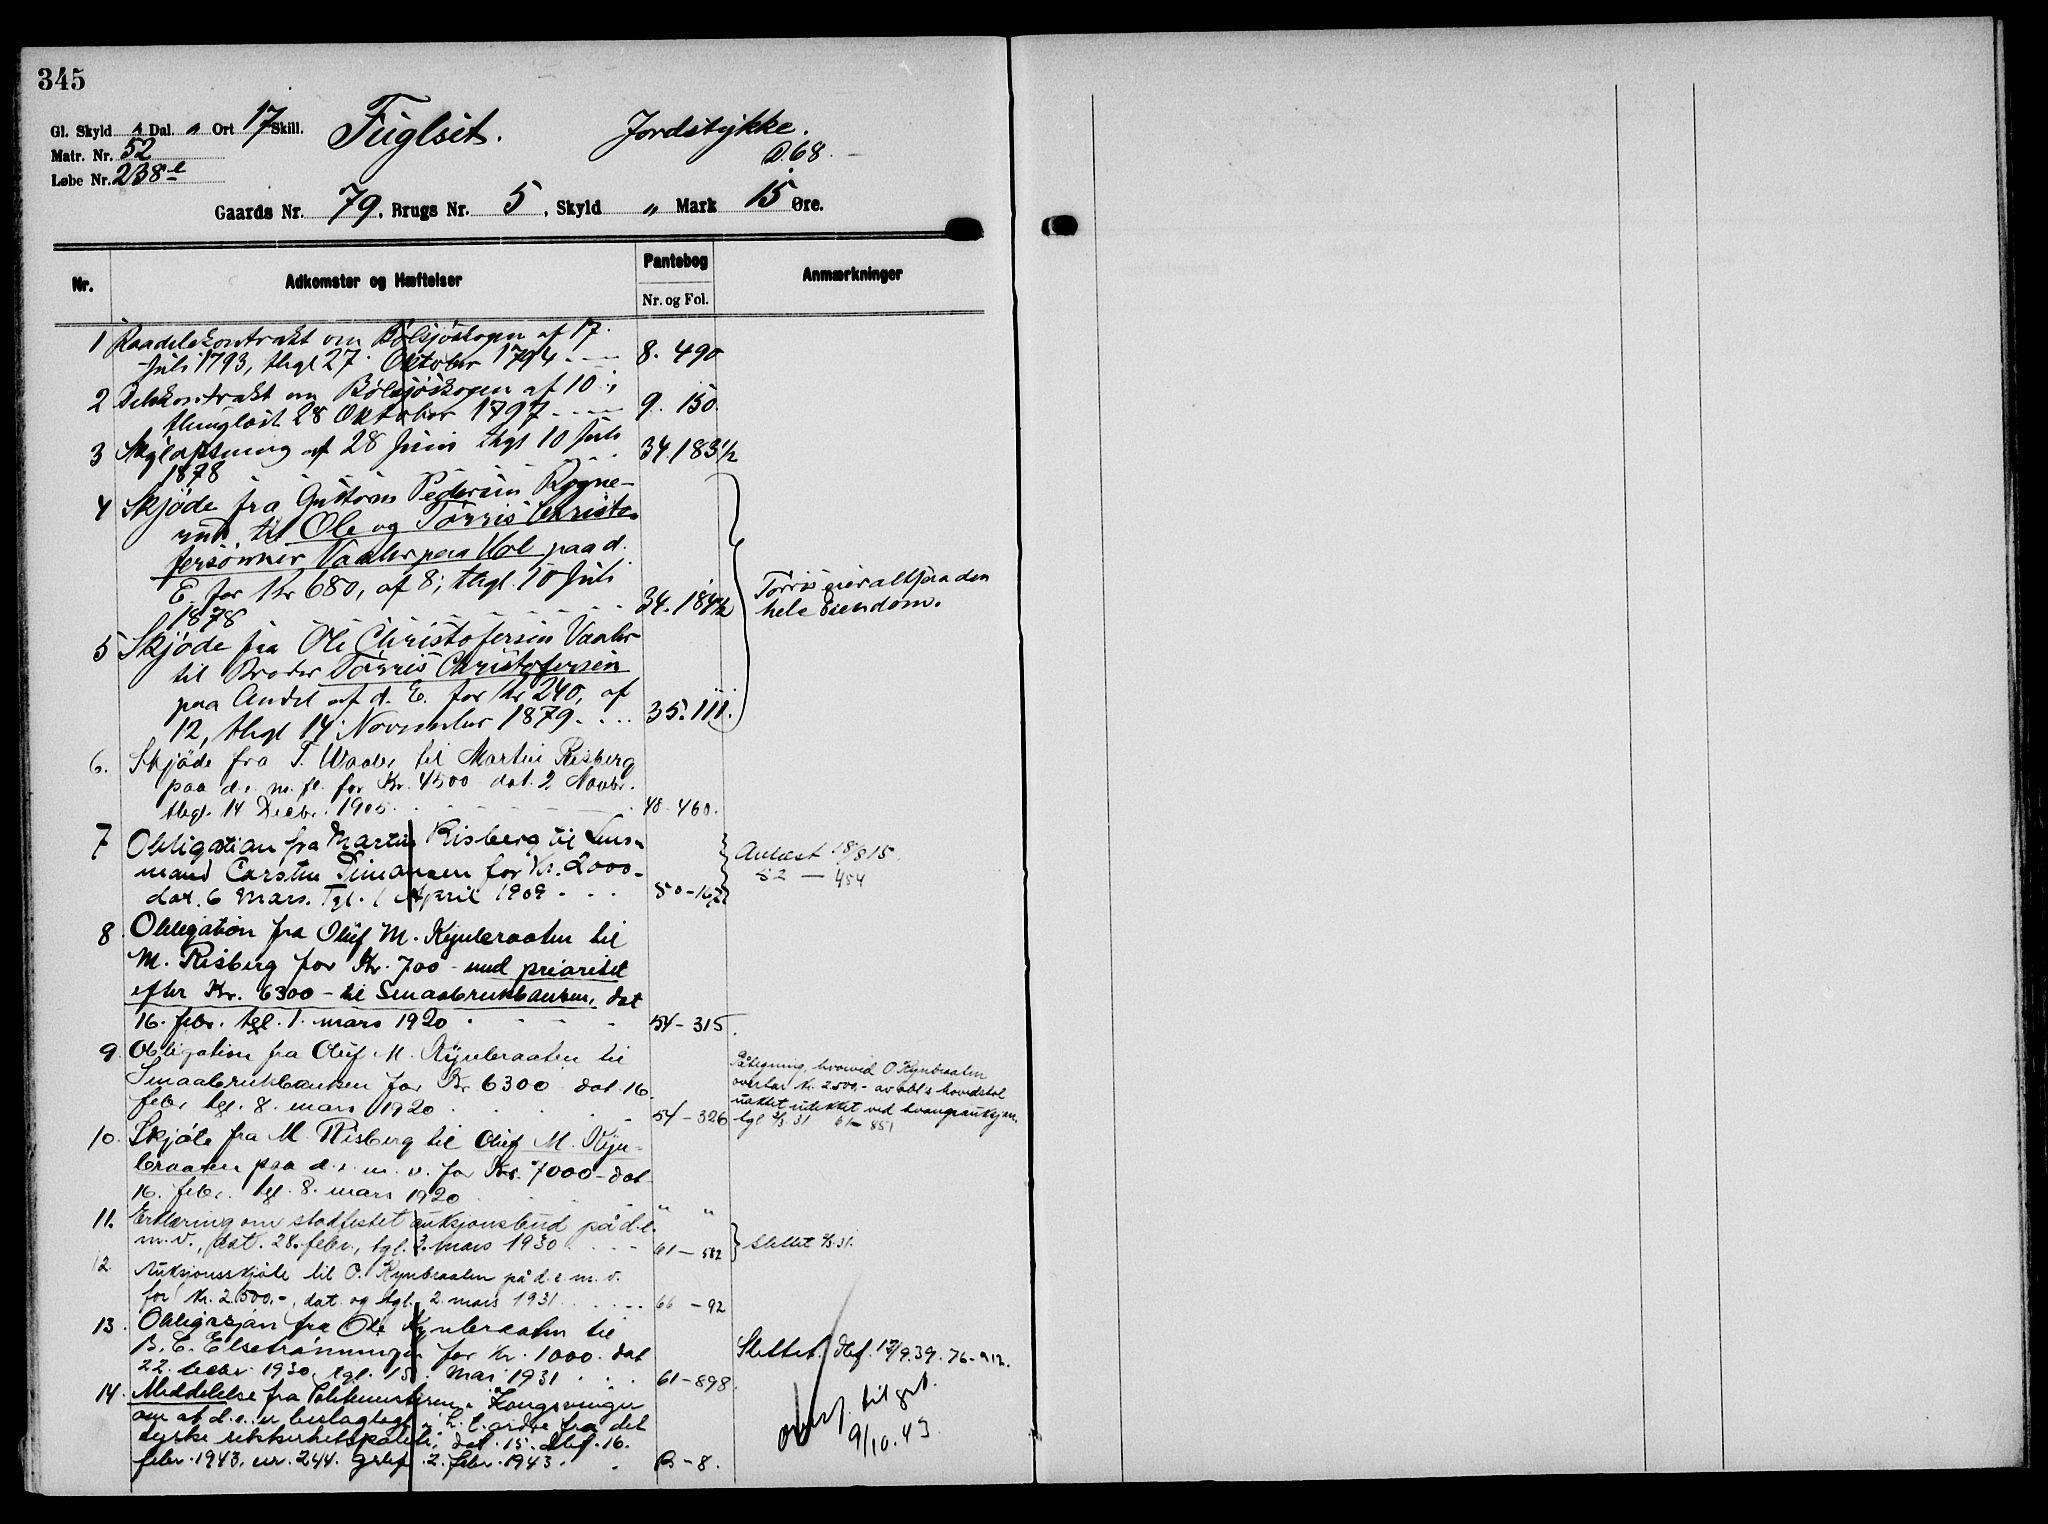 345
Gl. Skyld " Dal. " Ort 17 Skill. Fuglset. Jordstykke.
Matr. Nr. 52 D. 68.
Løbe Nr. 238 l
Gaards Nr. 79, Brugs Nr. 5, Skyld " Mark 15 Øre.
Nr. Adkomster og Hæftelser Pantebog Anmærkninger
Nr. og Fol.
1 Raadelekontrakt om Bølsjøskogen af 17.
Juli 1793, thgl 27. Oktober 1794. 8. 490
2 Delekontrakt om Bølsjøskogen af 10.,
thinglæst 28 Oktober 1797 9. 150.
3 af 28 Juni thgl 10 Juli
1878 34. 183 1/2
4 Skjøde fra Gustav Pedersen Rogne-
rud til Ole og Tørris Christo-
fersønner Vaaler paa Hol paa d.
E. for Kr 680, af 8; thgl. 10 Juli
1878 34. 184 1/2
Tørris eier altsaa den
hele Eiendom.
5 Skjøde fra Ole Christofersen Vaaler
til Broder Tørris Christofersen
paa Andel af d. E. for Kr 240, af
12, thgl 14 November 1879. 35. 111.
6. Skjøde fra T. Waaler til Martin Risberg
paa d. e. m. fl. for Kr. 4500 dat. 2 Novbr.
thgl. 14 Decbr. 1905. 48-460.
7 Obligation fra Martin Risberg til Lens-
mand Carsten Simonsen for Kr. 2000-
dat. 6 Mars. Tgl. 1 April 1909 50-167
Avlæst 18/8 15.
52 — 454
8. Obligation fra Oluf M. Kynbraaten til
M. Risberg for Kr. 700 - med prioritet
efter Kr. 6300 - til Smaabrukbanken, dat
16. febr. tgl. 1. mars 1920 54-315.
9. Obligation fra Oluf M. Kynbraaten til
Smaabrukbanken for Kr 6300 dat. 16.
febr. tgl. 8. mars 1920 54-326
Påtegning, hvorved O Kynbraaten
overtar kr. 2500,- av obl.s hovedstol
uaktet utslukket ved tvangsauksjon.
tgl 2/3 31 61-851
10. Skjøte fra M. Risberg til Oluf M. Kyn-
braaten paa d. e. m. v. for Kr. 7000 - dat.
16. febr. tgl. 8. mars 1920 " "
11. Erklæring om stadfestet auksjonsbud på d. e.
m. v., dat. 28. febr., tgl. 3. mars 1930. 61-582
Slettet 2/3. 31.
12. Auksjonsskjøte til O. Kynbraaten på d. e. m. v.
for kr. 2.500.-, dat. og tgl. 2. mars 1931. 66 - 92
13. Obligasjon fra Ole Kynbraaten til
B. E. Elsetrønningen for kr. 1000. dat
22. decbr 1930, tgl. 15. mai 1931 61-898.
Slettet. dbf. 12/9.39. 76-912.
14. Meddelelse fra Politimesteren i Kongsvinger
om at d. e. er beslaglagt i h. t. ordre fra det
tyske sikkerhetspoliti, dat. 15. dbf. 16.
febr. 1943. nr. 244. grbf. 2. febr. 1943. B-8.
9/10.43.